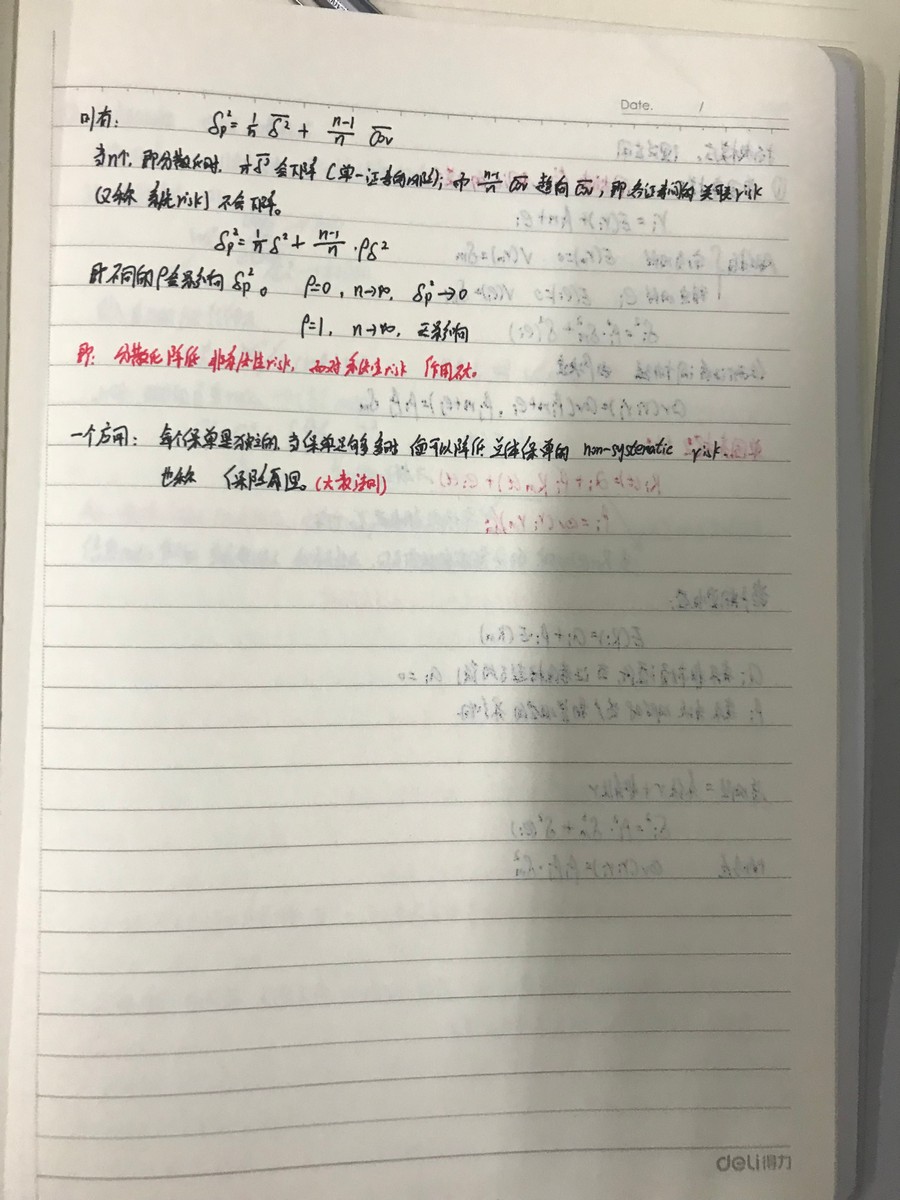 Date. /
则有: δp² = 1/n δ̄² + n-1/n C̄ov
当n↑, 即分散化时, 1/n δ̄² 会下降 (单一证券的风险); 而 n-1/n C̄ov 趋向 C̄ov, 即各证券间的关联risk
(又称 系统risk) 不会下降。
δp² = 1/n δ² + n-1/n · ρδ²
则不同的ρ会影响 δp²。 ρ=0, n→∞, δp²→0
ρ=1, n→∞, 无影响
即: 分散化降低 非系统性risk, 而对系统性risk 作用不大。
一个应用: 每个保单是独立的, 当保单足够多时 便可以降低 总体保单的 non-systematic risk.
也称 保险原理。(大数法则)
deli得力